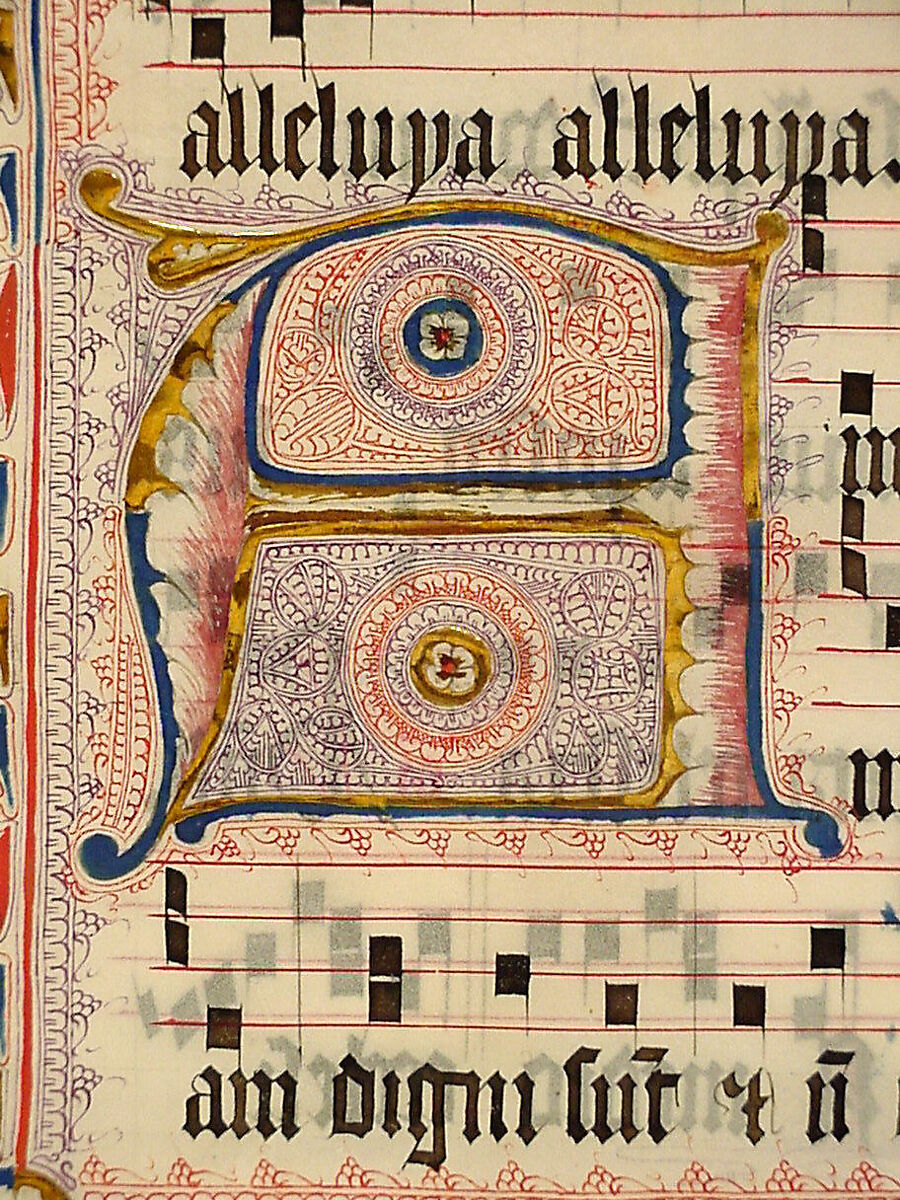 alleluya alleluya.
A
am digni sūt ⁊ ī